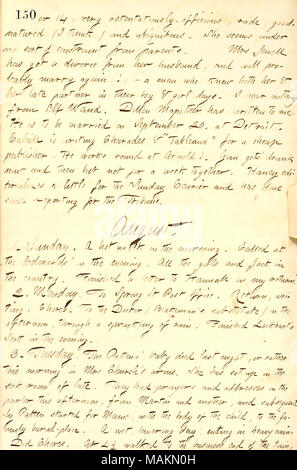 150
or 14, very ostentatiously officious, rude good-
natured (I think) and ubiquitous. She seems under
no sort of restraint from parents. Mrs Jewell
has got a divorce from her husband, and will pro-
bably marry again a man who knew both her &
her late partner in their boy & girl days. I hear nothing
from Alf Waud. Dillon Mapother has written to me.
He is to be married on September 20, at Detroit.
Cahill is writing Charades & "Tableaux" for a cheap
publisher. He works round at Arnold's. Gunn gets drunk
now and then but not for a week together. Haney edi-
torializes a little for the Sunday Courier and has done
some reporting for the Tribune.
August
1. Sunday. A hot in the morning. Called at
the Edwards' in the evening. All the girls and Jack in
the country. Finished a letter to Hannah in my
2. Monday. To Spring St Post Office. Return, wri-
ting. Chores. To the Doctor (substitute) in the
afternoon, through a sprinkling of rain. Finished Lockhart's
Scott in the evening.
3. Tuesday. The Pattens' baby died last night, or rather
this morning in Mrs Church's arms. She has sat up in the
sick room of late. They had prayers and addresses in the
parlor this afternoon, from Martin and another, and subsequent-
ly Patten started for Maine, with the body of the child, to the fa-
mily burial-place. A hot lowering day, ending in heavy rain.
Did Chores. At 4½ walked to the business end of the town,
alamy
Image ID: MAKN0H
www.alamy.com